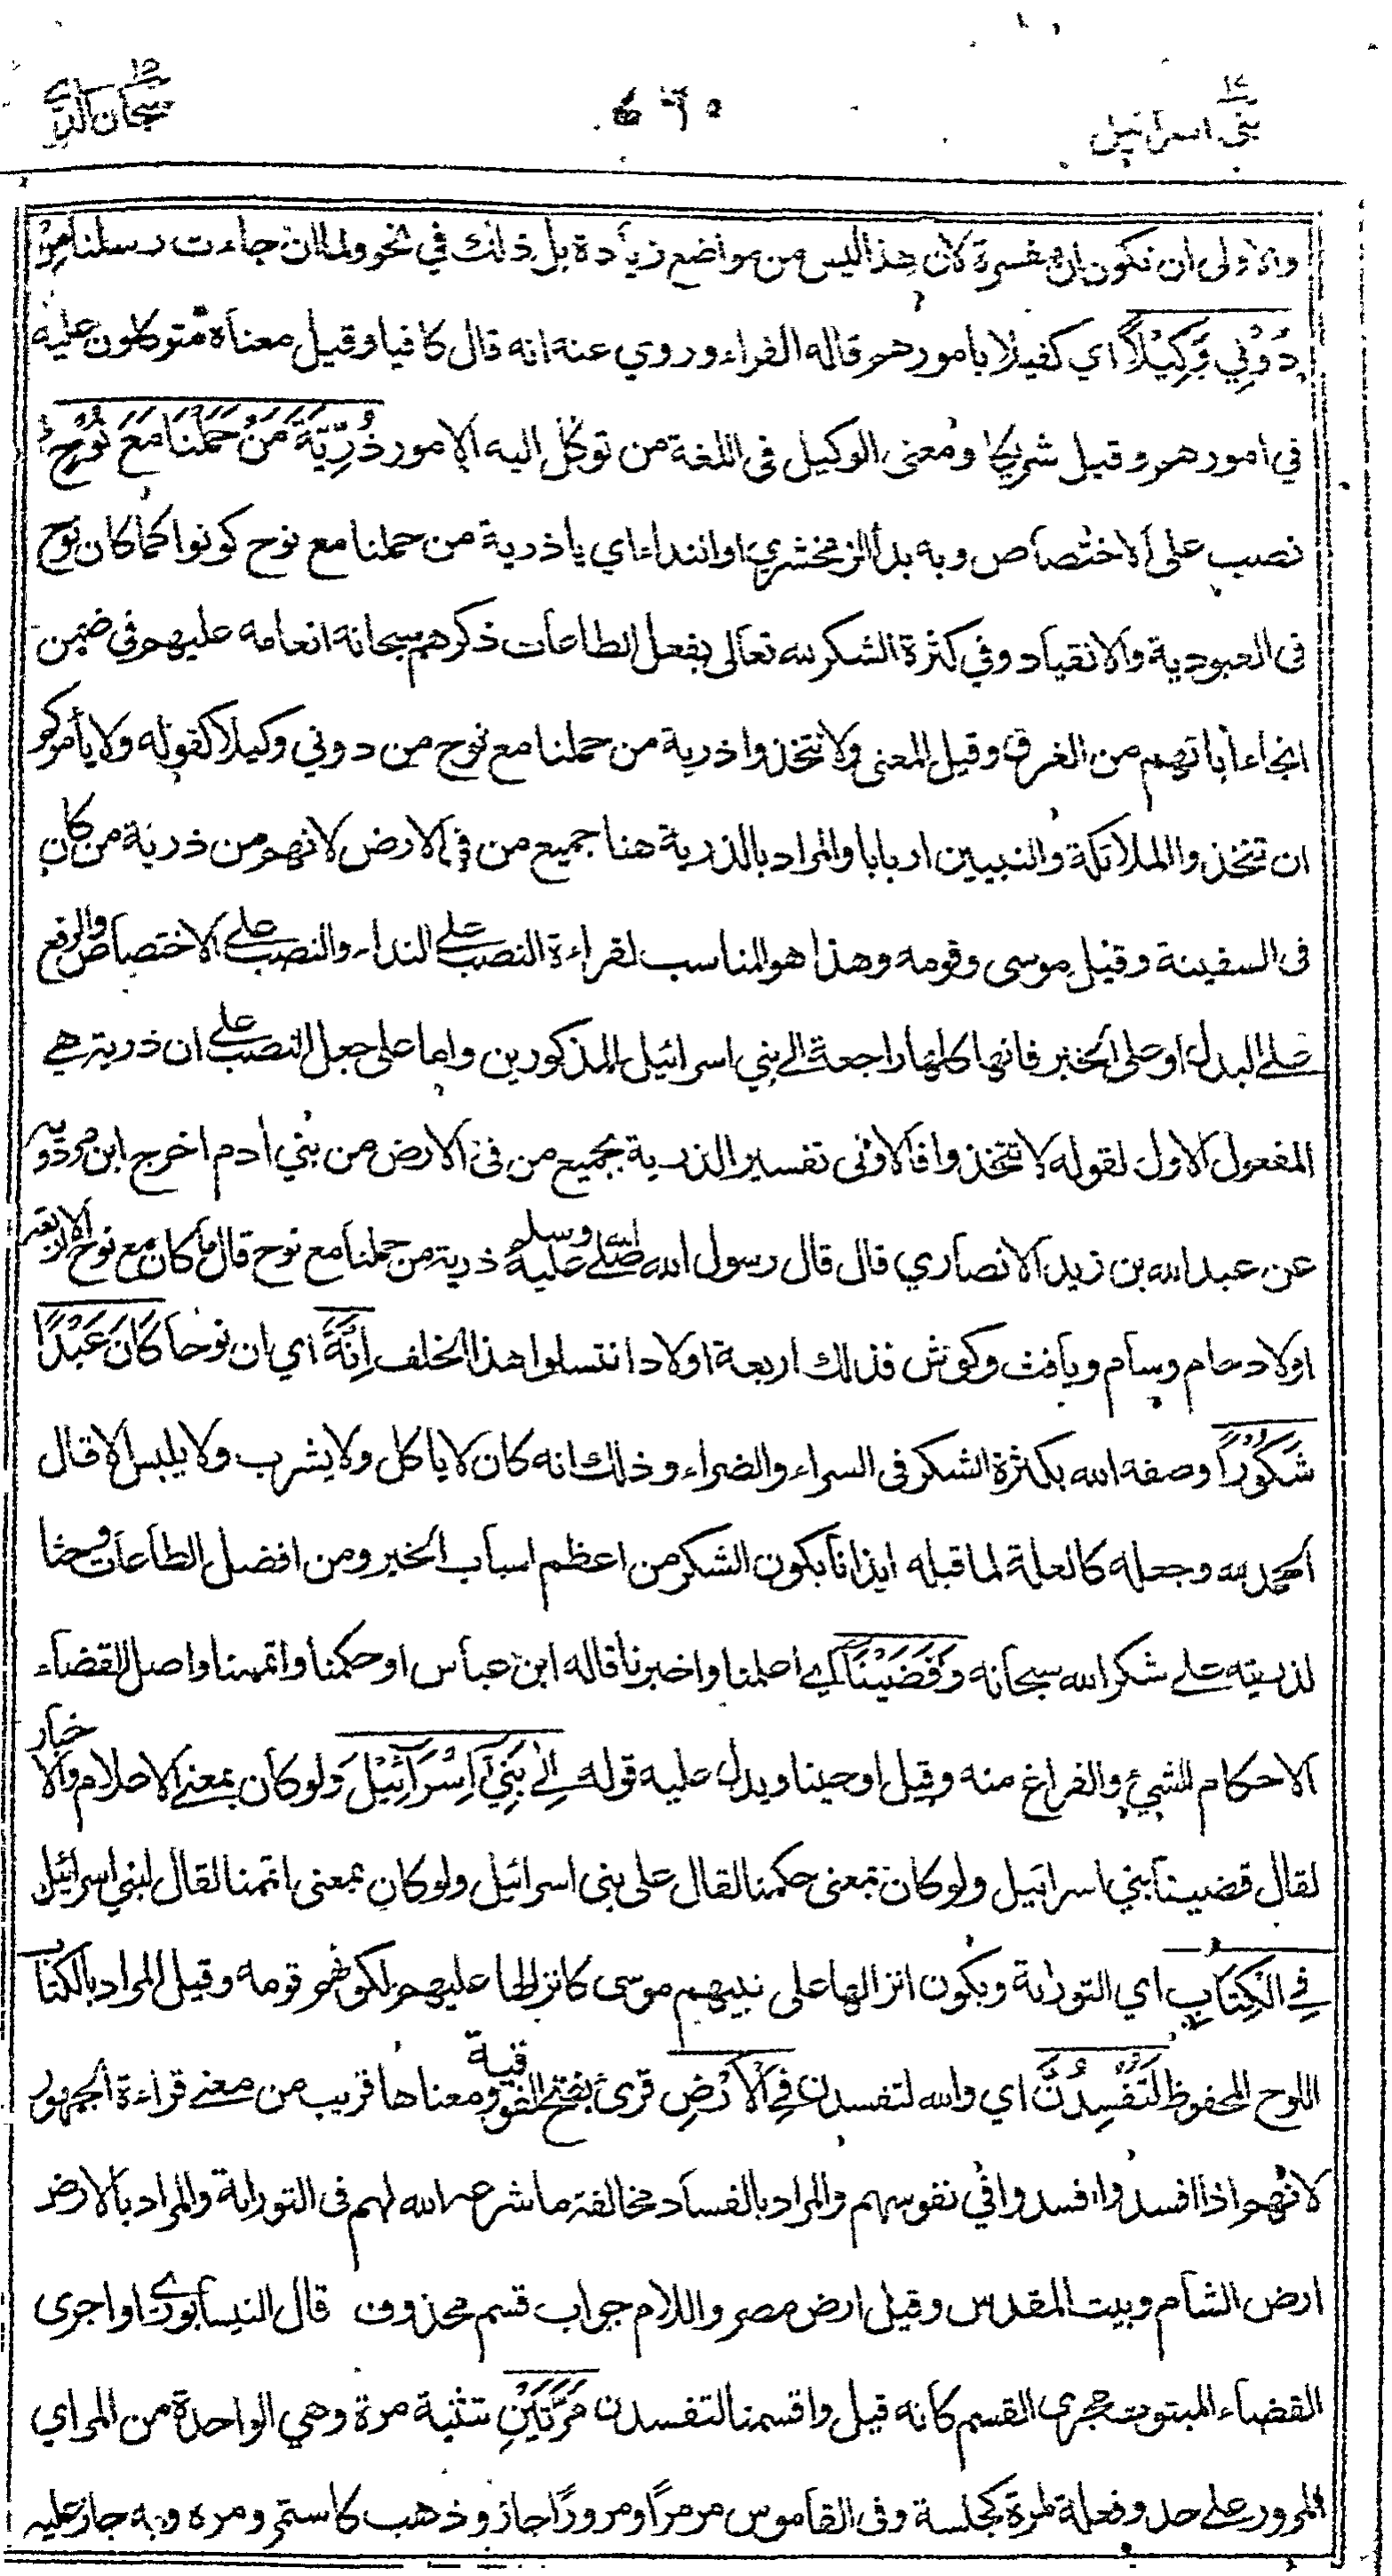 ١٥
سبحان الذي
٦٦٥
١٧
بني اسرائيل
والاولى ان تكون ان مفسرة لان هذا ليس من مواضع زيادة بل ذلك في نحو ولما ان جاءت رسلنا مِنْ
دُوْنِي وَكِيْلًا اي كفيلا بامورهم قاله الفراء وروي عنه انه قال كافيا وقيل معناه متوكلون عليه
في امورهم وقيل شريكا ومعنى الوكيل فى اللغة من توكل اليه الامور ذُرِّيَّةَ مَنْ حَمَلْنَا مَعَ نُوْحٍ
نصب على الاختصاص وبه بدأ الزمخشري او النداء اي يا ذرية من حملنا مع نوح كونوا كما كان نوح
فى العبودية والانقياد وفي كثرة الشكر لله تعالى بفعل الطاعات ذكرهم سبحانه انعامه عليهم في ضمن
انجاء اباتهم من الغرق وقيل المعنى ولا تتخذوا ذرية من حملنا مع نوح من دوني وكيلا كقوله ولا يأمركم
ان تتخذوا الملائكة والنبيين اربابا والمراد بالذرية هنا جميع من في الارض لانهم من ذرية من كان
فى السفينة وقيل موسى وقومه وهذا هو المناسب لقراءة النصب على النداء والنصب على الاختصاص والرفع
على البدل او على الخبر فانها كلها راجعة الى بني اسرائيل المذكورين واما على جعل النصب على ان ذرية هي
المفعول الاول لقوله لا تتخذوا فالاولى تفسير الذرية بجميع من فى الارض من بني أدم اخرج ابن مردويه
عن عبد الله بن زيد الانصاري قال قال رسول الله صلى الله عليه وسلم ذرية من حملنا مع نوح قال ما كان مع نوح الا اربعة
اولاد حام وسام ويافث وكوش فذالك اربعة اولاد انتسلوا هذا الخلف اِنَّهٗ اي ان نوحا كَانَ عَبْدًا
شَكُوْرًا وصفه الله بكثرة الشكر فى السراء والضراء وذلك انه كان لا ياكل ولا يشرب ولا يلبس الا قال
الحمد لله وجعله كالعلة لما قبله ايذانا بكون الشكر من اعظم اسباب الخير ومن افضل الطاعات وحثا
لذريته على شكر الله سبحانه وَقَضَيْنَا اي اعلمنا واخبرنا قاله ابن عباس او حكمنا واتممنا واصل القضاء
الاحكام للشيئ والفراغ منه وقيل اوحينا ويدل عليه قوله اِلٰى بَنِيْٓ اِسْرَآئِيْلَ ولو كان بمعنى الاعلام والاخبار
لقال قضينا بني اسرائيل ولو كان بمعنى حكمنا لقال على بني اسرائيل ولو كان بمعنى اتممنا لقال لبني اسرائيل
فِي الْكِتَابِ اي التوراة ويكون انزالها على نبيهم موسى كانزالها عليهم لكونهم قومه وقيل المراد بالكتاب
اللوح المحفوظ لَتُفْسِدُنَّ اي والله لتفسدن فِي الْاَرْضِ قرئ بفتح الفوقية ومعناها قريب من معنى قراءة الجمهور
لانهم اذا افسدوا افسدوا في نفوسهم والمراد بالفساد مخالفة ما شرعه الله لهم فى التوراة والمراد بالارض
ارض الشام وبيت المقدس وقيل ارض مصر واللام جواب قسم محذوف قال النيسابوري او اجرى
القضاء المبتوت مجرى القسم كانه قيل واقسمنا لتفسدن مَرَّتَيْنِ تثنية مرة وهي الواحدة من المراي
المرور على حد وفعلة لمرة كجلسة وفى القاموس مر مرا ومرورا جاز وذهب كاستمر ومره وبه جاز عليه